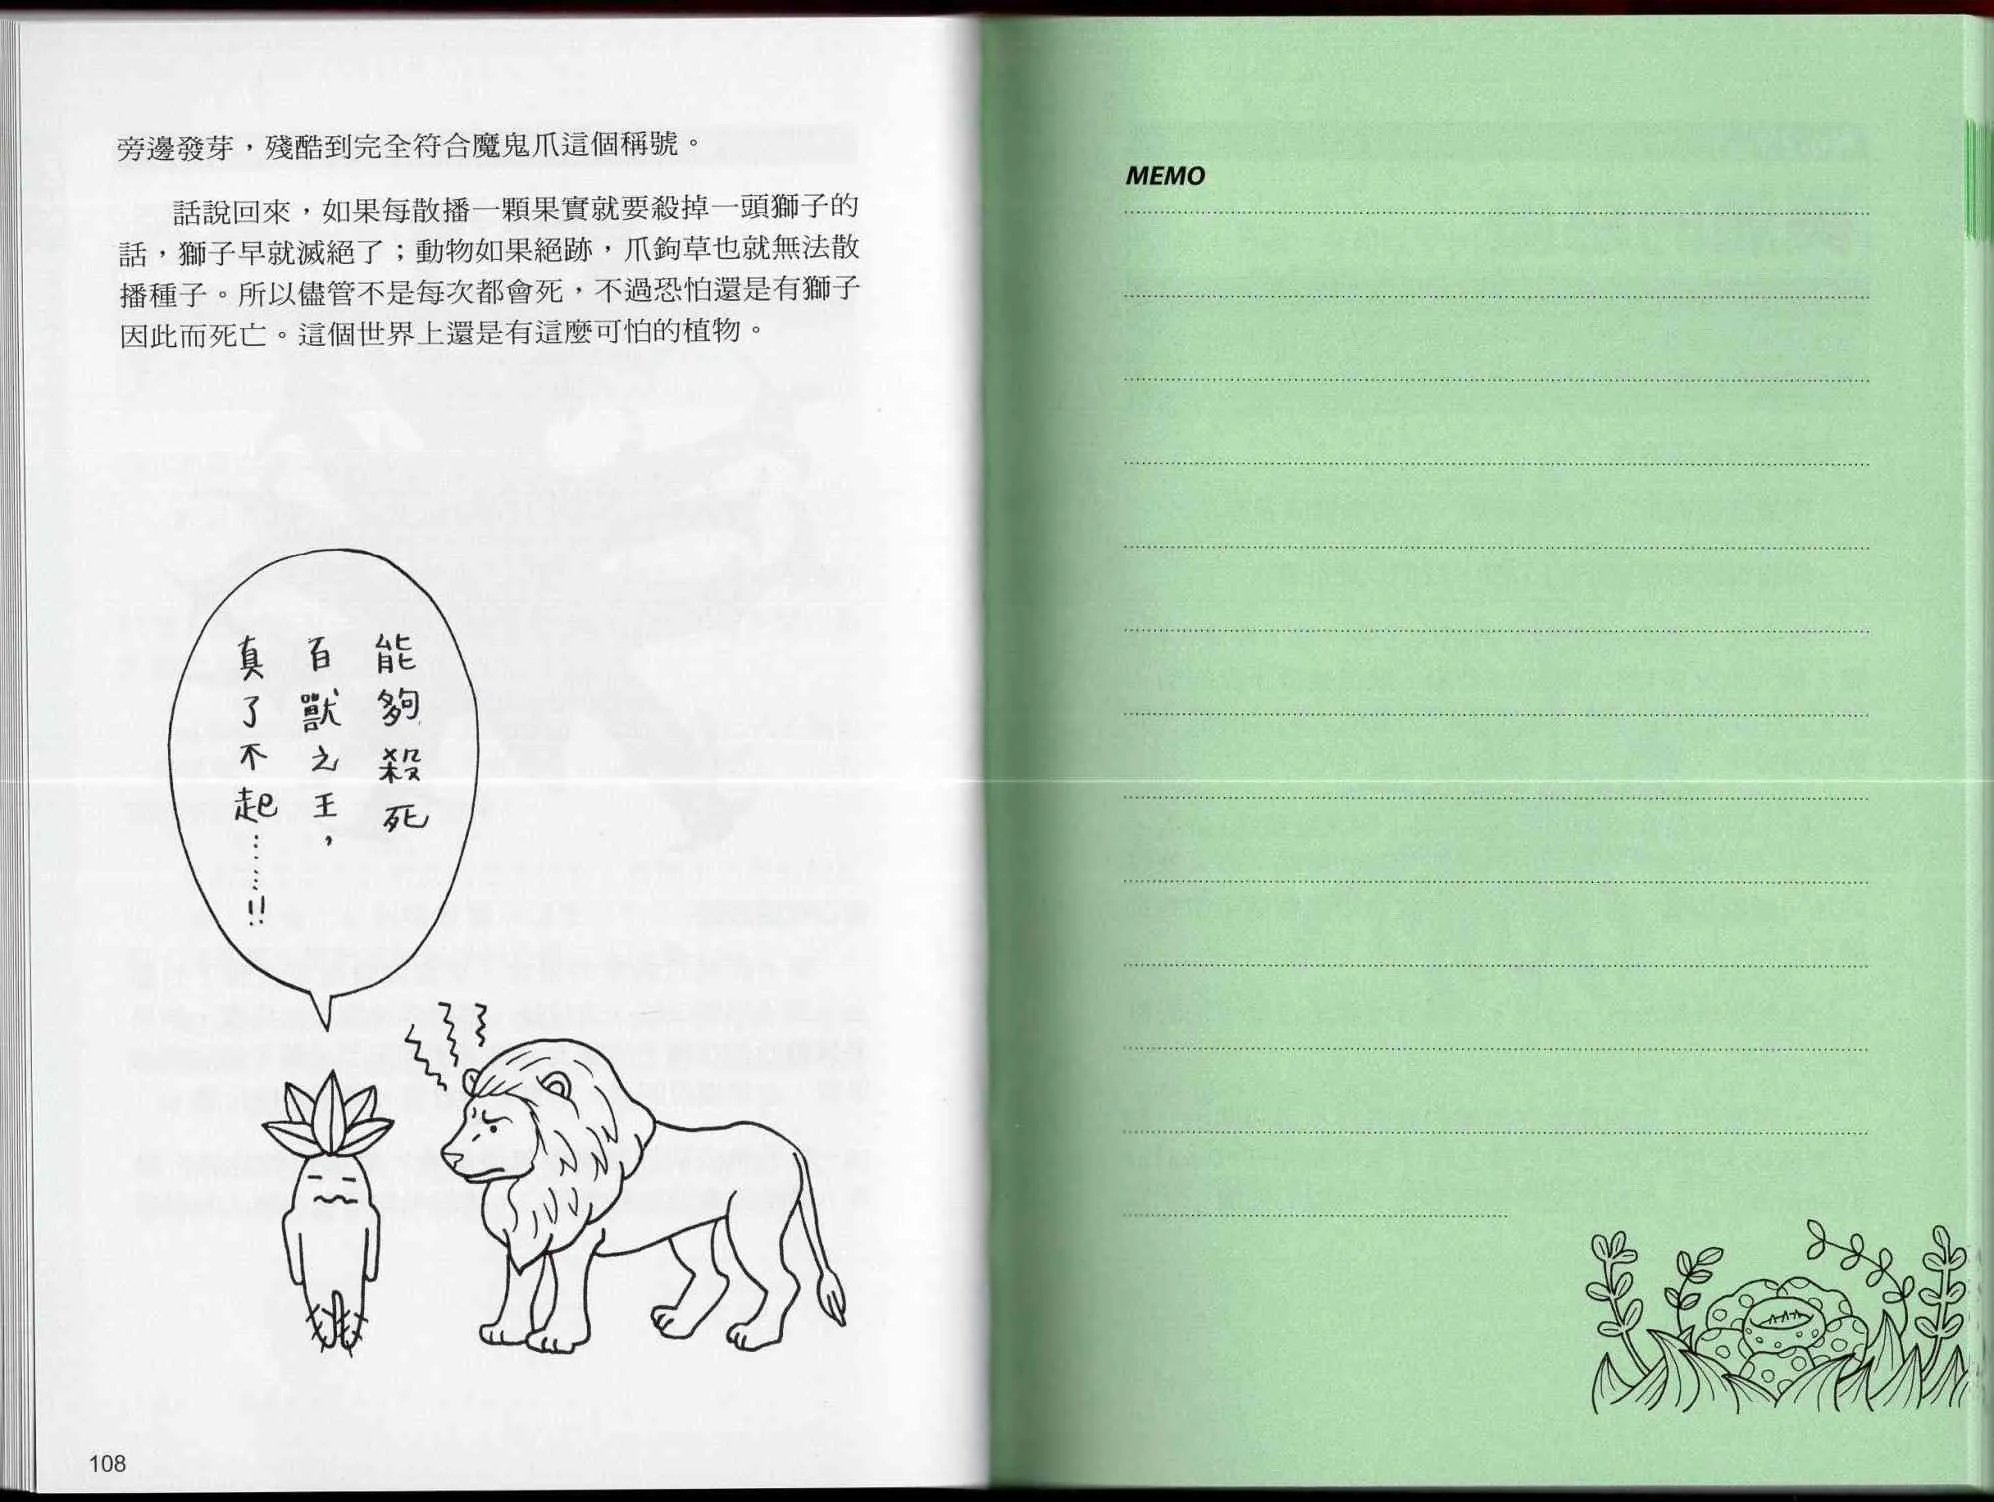 旁邊發芽，殘酷到完全符合魔鬼爪這個稱號。
話說回來，如果每散播一顆果實就要殺掉一頭獅子的
話，獅子早就滅絕了；動物如果絕跡，爪鉤草也就無法散
播種子。所以儘管不是每次都會死，不過恐怕還是有獅子
因此而死亡。這個世界上還是有這麼可怕的植物。
能夠殺死
百獸之王，
真了不起……!!
108
MEMO